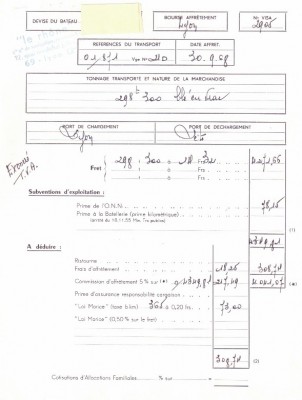 DEVISE DU BATEAU
BOURSE AFFRÈTEMENT
Lyon
No VISA
2905
RÉFÉRENCES DU TRANSPORT
DATE AFFRET.
30.9.68
TONNAGE TRANSPORTÉ ET NATURE DE LA MARCHANDISE
298 t 300 blé en vrac
PORT DE CHARGEMENT
PORT DE DÉCHARGEMENT
Lyon
Sète
Exonéré T.V.A.
Fret
298 300 à Fr
à Fr
à Fr
Subventions d'exploitation :
Prime de l'O.N.N.
78,15
Prime à la Batellerie (prime kilométrique)
(arrêté du 18.11.55 Min. Trx publics)
(1)
A déduire :
Ristourne
Frais d'affrètement
18,26
308,71
Commission d'affrètement 5 % sur (*)
217,49
Prime d'assurance responsabilité cargaison
"Loi Morice" (taxe b/km) à 0,20 frs.
73,00
"Loi Morice" (0,50 % sur le fret)
308,71
(2)
Cotisations d'Allocations Familiales % sur =